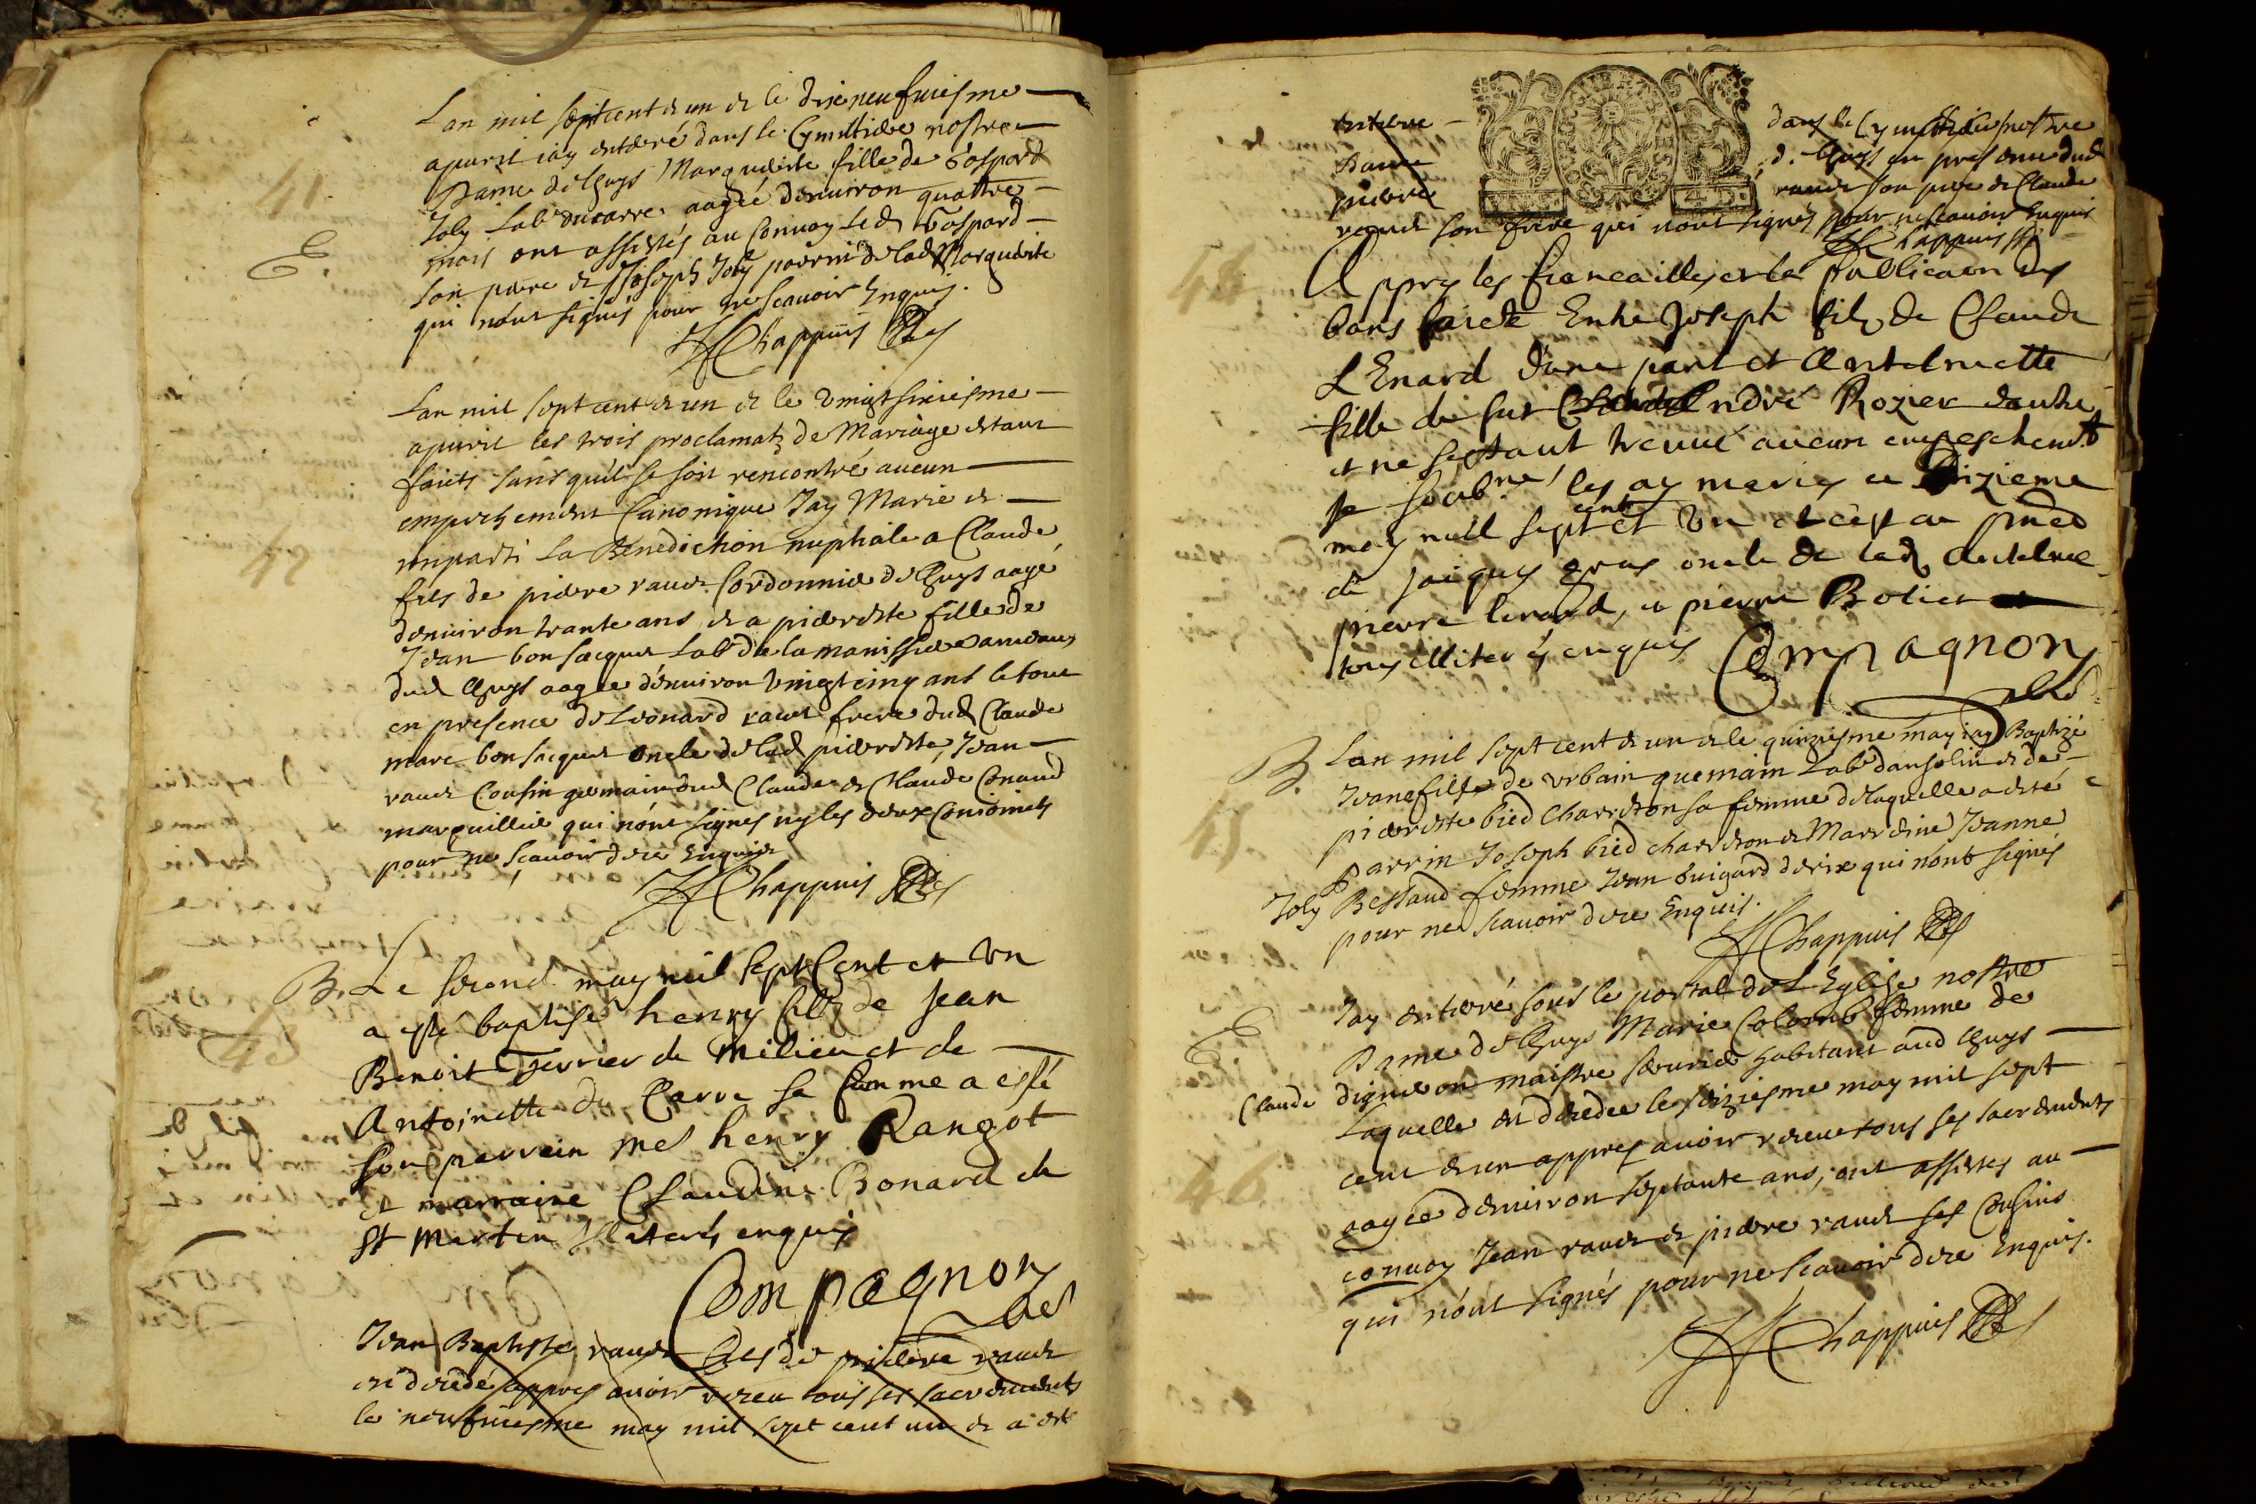 Lan mil septcent & un & le dixneufuiesme
apuril iay enterré dans le Cymettiere nostre
41
Dame de Lhuys Marguerite fille de Gaspard
Joly Lab ducarre aagée denuiron quattre
mois ont assistés au Conuoy led Gaspard
E.
son pere & Joseph Joly parrin de lad Marguerite
qui nont signés pour ne scauoir Enquis.
HChappuis
Lan mil sept cent & un & le vingtsixiesme
apuril les trois proclamat de Mariage estant
faicts sans quil se soit rencontré aucun
empechement Canonique Jay Marié &
42
imparti La Benediction nuptiale a Claude
fils de pierre raud Cordonnier de Lhuys aagé
denuiron trante ans & a pierrette fille de
Jean bon Jacques Lab de la manissiere
dud Lhuys aagée denuiron vingtcinq ans le tout
en presence de Leonard frere dud Claude
marc bon Jacques oncle de lad pierrette, Jean
Cousin germain dud Claude & Claude Conand
marguillier qui nont signes ny les deux Conioincts
pour ne scauoir de ce Enquis
HChappuis
B. Le second may mil sept Cent et vn
43
a esté baptisé henry filz de Jean
Benoit Verrier de Milieu et de
Antoinette du Carre sa femme a esté
son parrain henry Rangot
et marraine Claudine Bonard de
St Martin illiterés enquis
Compagnon
Jean Baptiste fils de pierre
est decedé apres auoir receu tous ses sacrements
le neufuiesme may mil sept cent un & a esté
enterré dans le Cymettiere nostre
Dame d. Lhuys en presence dud
pierre son pere & Claude
son frere qui nont signés pour ne scauoir Enquis
HChappuis
44
Apprez les fiancailles et la publicaon des
bans faicte Entre Joseph filz de Claude
LEnard dune part et Antelmette
fille de fut André Rozier dautre
et ne sestant treuué aucun empeschemt
je les ay mariez ce
may mil sept cent et vn et ce en
de Jacques gras oncle de lad
pierre lenard, et pierre Bolict
tous illiterés enquis Compagnon
B. Lan mil sept cent & un & le quinziesme may iay Baptizé
Jeane fille de vrbain guemain Lab & de
45
pierrette bied Charreton sa femme de laquelle a esté
parrin Joseph bied charreton & Marreine Jeanne
Joly Bessand femme Jean qui nont signés
pour ne scauoir de ce Enquis.
HChappuis
E
Jay enterré sous le portal de LEglise nostre
Dame de Lhuys Marie Colomb femme de
Claude digneron maistre habitant aud Lhuys
laquelle est decedée le seiziesme may mil sept
46
cent & un appres auoir receu tous ses sacrements
aagée denuiron septante ans, ont assistes au
conuoy Jean & pierre ses Cousins
qui nont signés pour ne scauoir de ce Enquis.
HChappuis